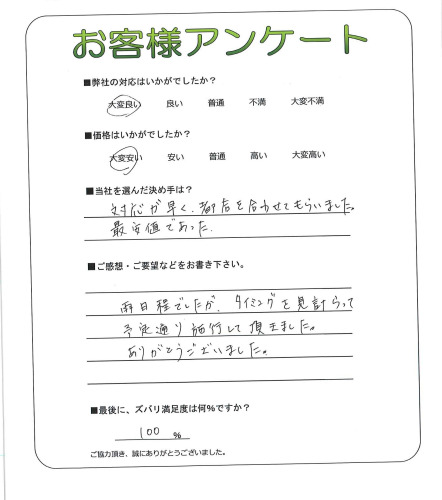 お客様アンケート
■弊社の対応はいかがでしたか？
大変良い 良い 普通 不満 大変不満
■価格はいかがでしたか？
大変安い 安い 普通 高い 大変高い
■当社を選んだ決め手は？
対応が早く、都合を合わせてもらいました。
最安値であった。
■ご感想・ご要望などをお書き下さい。
雨日程でしたが、タイミングを見計らって
予定通り施行して頂きました。
ありがとうございました。
■最後に、ズバリ満足度は何％ですか？
100 ％
ご協力頂き、誠にありがとうございました。